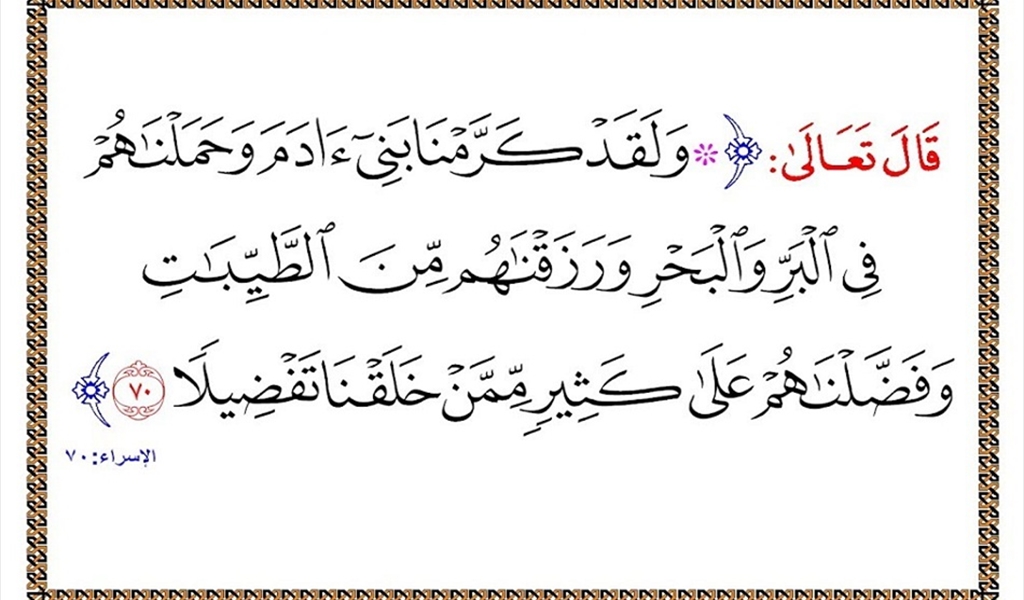 قَالَ تَعَالَىٰ: ﴿ ۞ وَلَقَدْ كَرَّمْنَا بَنِيٓ ءَادَمَ وَحَمَلْنَٰهُمْ
فِي ٱلْبَرِّ وَٱلْبَحْرِ وَرَزَقْنَٰهُم مِّنَ ٱلطَّيِّبَٰتِ
وَفَضَّلْنَٰهُمْ عَلَىٰ كَثِيرٍ مِّمَّنْ خَلَقْنَا تَفْضِيلًا ٧٠ ﴾
الإسراء: ٧٠